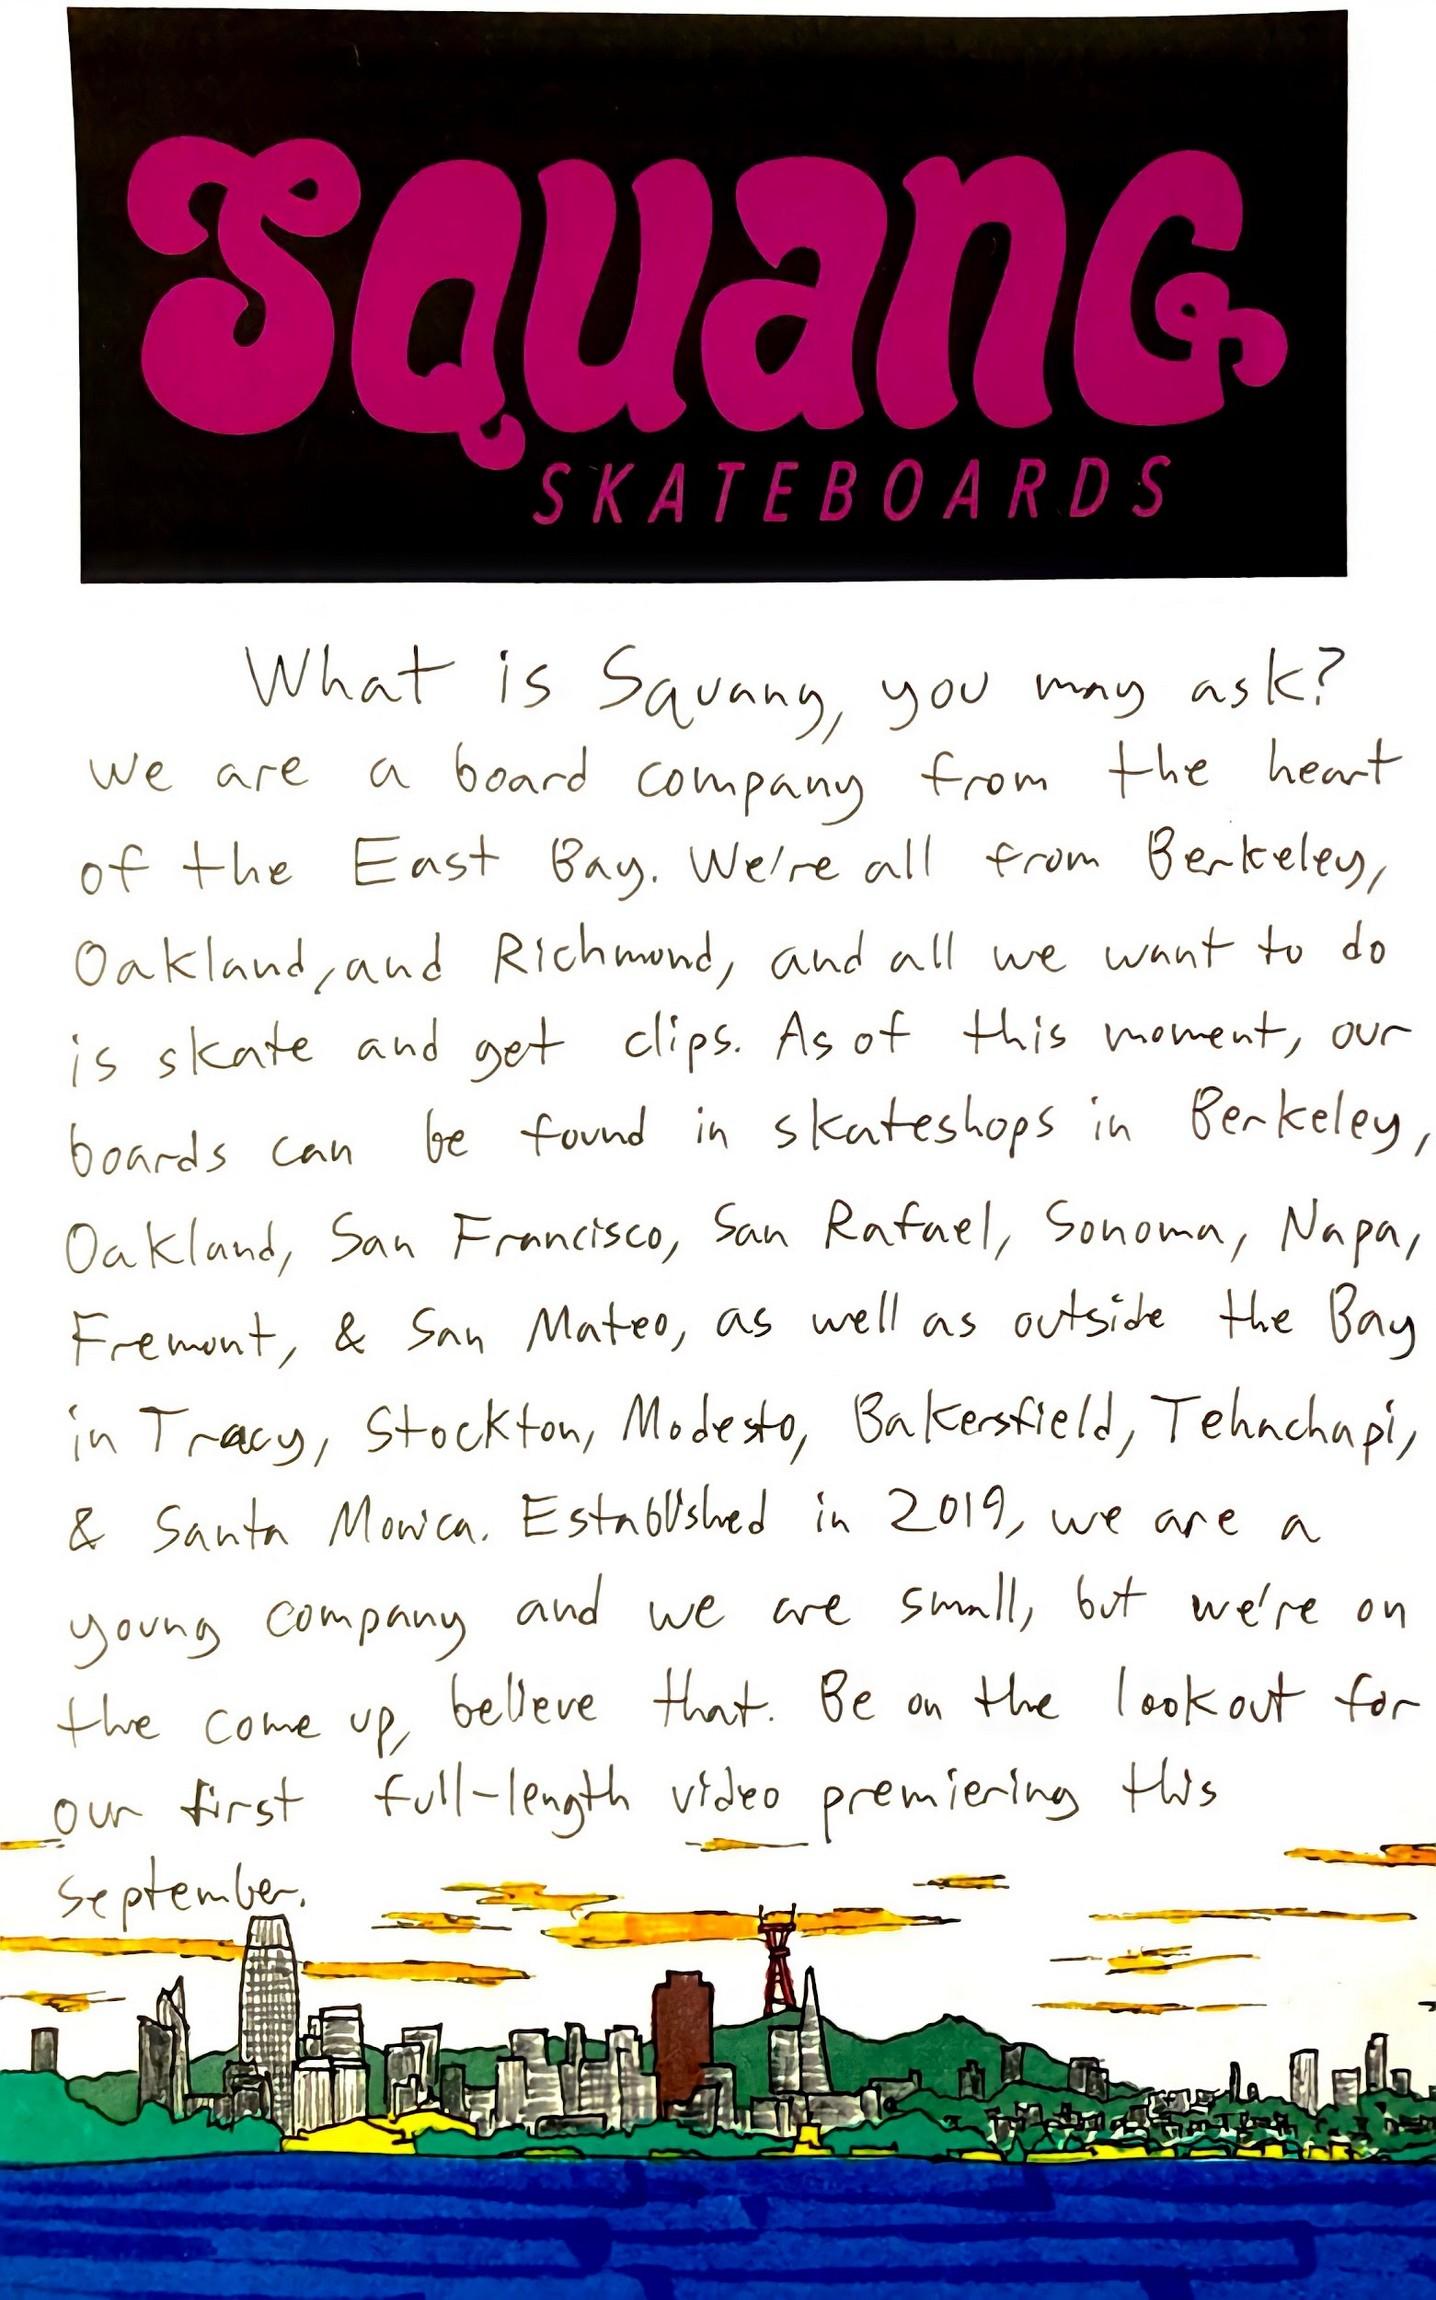 Squang
SKATEBOARDS
What is Squang, you may ask?
We are a board company from the heart
of the East Bay. We're all from Berkeley,
Oakland, and Richmond, and all we want to do
is skate and get clips. As of this moment, our
boards can be found in skateshops in Berkeley,
Oakland, San Francisco, San Rafael, Sonoma, Napa,
Fremont, & San Mateo, as well as outside the Bay
in Tracy, Stockton, Modesto, Bakersfield, Tehachapi,
& Santa Monica. Established in 2019, we are a
young company and we are small, but we're on
the come up, believe that. Be on the lookout for
our first full-length video premiering this
september.